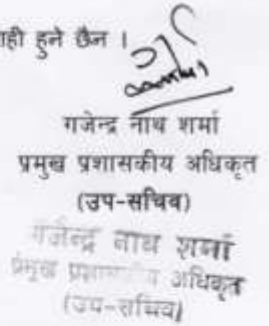 ाही हुने छैन ।
गजेन्द्र नाथ शर्मा
प्रमुख प्रशासकीय अधिकृत
(उप-सचिव)
गजेन्द्र नाथ शर्मा
प्रमुख प्रशासकीय अधिकृत
(उप-सचिव)